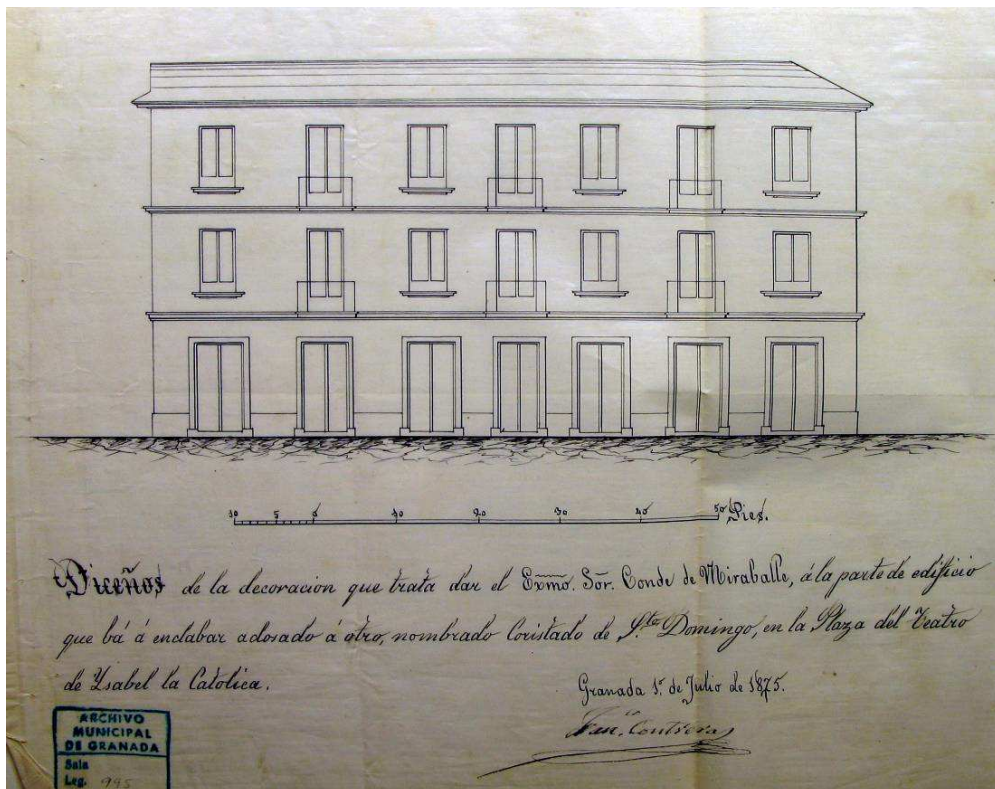 10 5 0 10 20 30 40 50 Pies.
Diceños de la decoracion que trata dar el Exmo. Sor. Conde de Miraballe, á la parte de edificio
que bá á enclabar adosado á otro, nombrado Coristado de Sto. Domingo, en la Plaza del Teatro
de Ysabel la Catolica.
Granada 1º de Julio de 1875.
Franco. Contreras
ARCHIVO
MUNICIPAL
DE GRANADA
Sala
Leg. 995